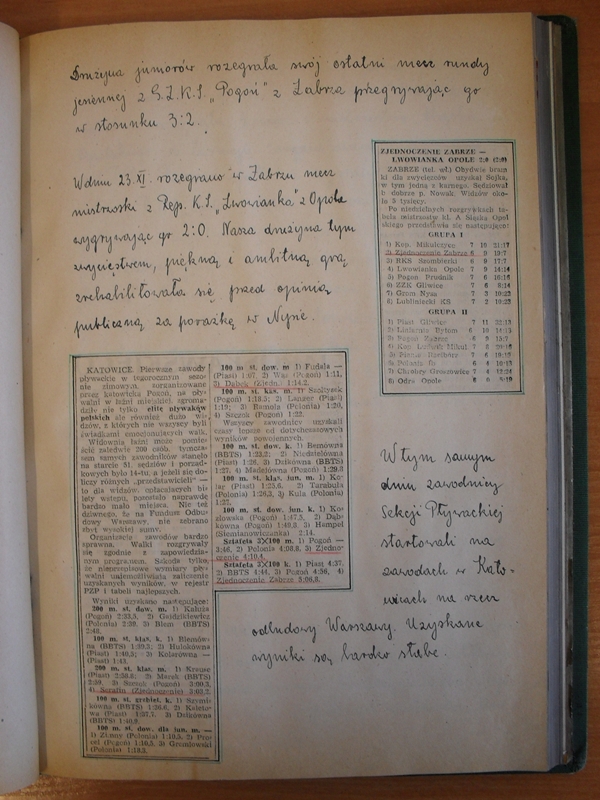 Drużyna juniorów rozegrała swój ostatni mecz rundy
jesiennej z G.Z.K.S. „Pogoń” z Zabrza przegrywając go
w stosunku 3:2.
W dniu 23.XI. rozegrano w Zabrzu mecz
mistrzoski z Rep. K.S. „Lwowianka” z Opola
wygrywając go 2:0. Nasza drużyna tym
zwycięstwem, piękną i ambitną grą
zrehabilitowała się przed opinią
publiczną za porażkę w Nysie.
ZJEDNOCZENIE ZABRZE —
LWOWIANKA OPOLE 2:0 (2:0)
ZABRZE (tel. wł.) Obydwie bram
ki dla zwycięzców uzyskał Sojka,
w tym jedną z karnego. Sędziował
b dobrze p. Nowak. Widzów oko-
ło 3 tysięcy.
Po niedzielnych rozgrywkach ta-
bela mistrzostw kl. A Śląska Opol
skiego przedstawia się następująco:
GRUPA I
1) Kop. Mikulczyce 7 10 21:17
2) Zjednoczenie Zabrze 6 9 19:7
3) RKS Szombierki 6 9 17:7
4) Lwowianka Opole 7 9 14:14
5) Pogoń Prudnik 7 6 16:15
6) ZZK Gliwice 7 6 8:14
7) Grom Nysa 7 3 10:22
8) Lubliniecki KS 7 2 10:23
GRUPA II
1) Piast Gliwice 7 11
3) Pogoń Zabrze 6 9 15:7
7) Chrobry Groszowice 7 4
8) Odra Opole 6 0
KATOWICE. Pierwsze zawody
pływackie w tegorocznym sezo-
nie zimowym, zorganizowane
przez katowicką Pogoń, na pły-
walni w łaźni miejskiej, zgroma-
dziły nie tylko elitę pływaków
polskich ale również dużo wi-
dzów, z których nie wszyscy byli
świadkami emocjonujących walk.
Widownia łaźni może pomie-
ścić zaledwie 200 osób, tymcza-
sem samych zawodników stanęło
na starcie 51, sędziów i porząd-
kowych było 14-tu, a jeżeli się do-
liczy różnych „przedstawicieli” —
to dla widzów, opłacających bi-
lety wstępu, pozostało naprawdę
bardzo mało miejsca. Nic też
dziwnego, że na Fundusz Odbu-
dowy Warszawy, nie zebrano
zbyt wysokiej sumy.
Organizacja zawodów bardzo
sprawna. Walki rozgrywały
się zgodnie z zapowiedzia-
nym programem. Szkoda tylko,
że nieprzepisowe wymiary pły-
walni uniemożliwiają zaliczenie
uzyskanych wyników, w rejestr
PZP i tabeli najlepszych.
Wyniki uzyskano następujące:
200 m. st. dow. m. 1) Kałuża
(Pogoń) 2:33,5, 2) Gwiździkiewicz
(Polonia) 2:39, 3) Blem (BBTS)
2:48.
100 m. st. klas. k. 1) Bienów-
na (BBTS) 1:39,5; 2) Hulokówna
(Piast) 1:40,5; 3) Kolerówna —
(Piast) 1:43.
200 m. st. klas. m. 1) Krause
(Piast) 2:58.8; 2) Marek (BBTS)
2:59, 3) Szczuk (Pogoń) 3:00.3,
4) Serafin (Zjednoczenie) 3:03.2.
100 m. st. grzbiet. k. 1) Szymi-
kówna (BBTS) 1:26.6, 2) Keleto-
wa (Piast) 1:37.7, 3) Dzikówna
(BBTS) 1:40.9.
100 m. st. dow. dla jun. m. —
1) Zimny (Polonia) 1:10,5, 2) Pro-
cel (Pogoń) 1:10,5, 3) Gremlowski
(Polonia) 1:18.3.
100 m st. dow. m 1) Fudala —
(Piast) 1:07, 2) Was (Pogoń) 1:11,
3) Dubek (Zjedn.) 1:14.2.
100 m. st. kas. m. 1) Szołtysek
(Pogoń) 1:18.3; 2) Langer (Piast)
1:19; 3) Ramola (Polonia) 1:20,
4) Szczok (Pogoń) 1:22.
Wszyscy zawodnicy uzyskali
czasy lepsze od dotychczasowych
wyników powojennych.
100 m. st. dow. k. 1) Bemówna
(BBTS) 1:25,2; 2) Niedzielówna
(Piast) 1:26, 3) Dzikówna (BBTS)
1:27, 4) Madejówna (Pogoń) 1:29.8
100 m. st. klas. jun. m. 1) Ko-
łar (Piast) 1:25,6, 2) Tarabuła
(Polonia) 1:26,3, 3) Kula (Polonia)
1:27.
100 m. st. dow. jun. k. 1) Ko-
złowska (Pogoń) 1:47.5, 2) Dąbe
kówna (Pogoń) 1:49.9, 3) Hempel
(Siemianowiczanka) 2:14.
Sztafeta 3X100 m. 1) Pogoń —
3:46, 2) Polonia 4:06.8, 3) Zjedno-
czenie 4:10.4.
Sztafeta 3X100 k. 1) Piast 4:37,
2) BBTS 4:44, 3) Pogoń 4:56, 4)
Zjednoczenie Zabrze 5:06.8.
W tym samym
dniu zawodnicy
Sekcji Pływackiej
startowali na
zawodach w Kato-
wicach na rzecz
odbudowy Warszawy. Uzyskane
wyniki są bardzo słabe.